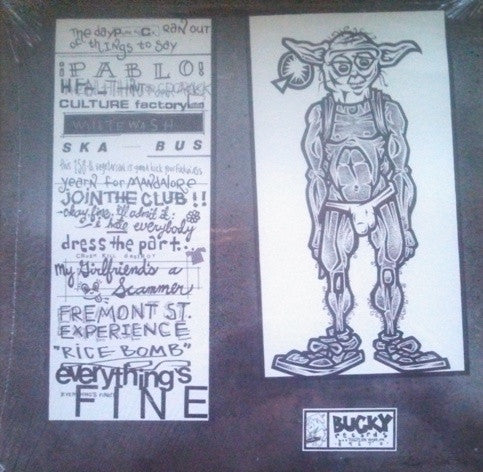 The day P. C. ran out
of things to say
¡PABLO!
CULTURE factory
WHITEWASH
SKA BUS
this 138 lb. vegetarian is gonna kick your
yearn for MANDALORE
JOIN THE CLUB!!
okay fine, I'll admit it:
i hate everybody
dress the part...
CRUSH KILL DESTROY
my Girlfriend's a
Scammer
FREMONT ST.
EXPERIENCE
"RICE BOMB"
everything's
EVERYTHING'S FINE
FINE
BUCKY
records